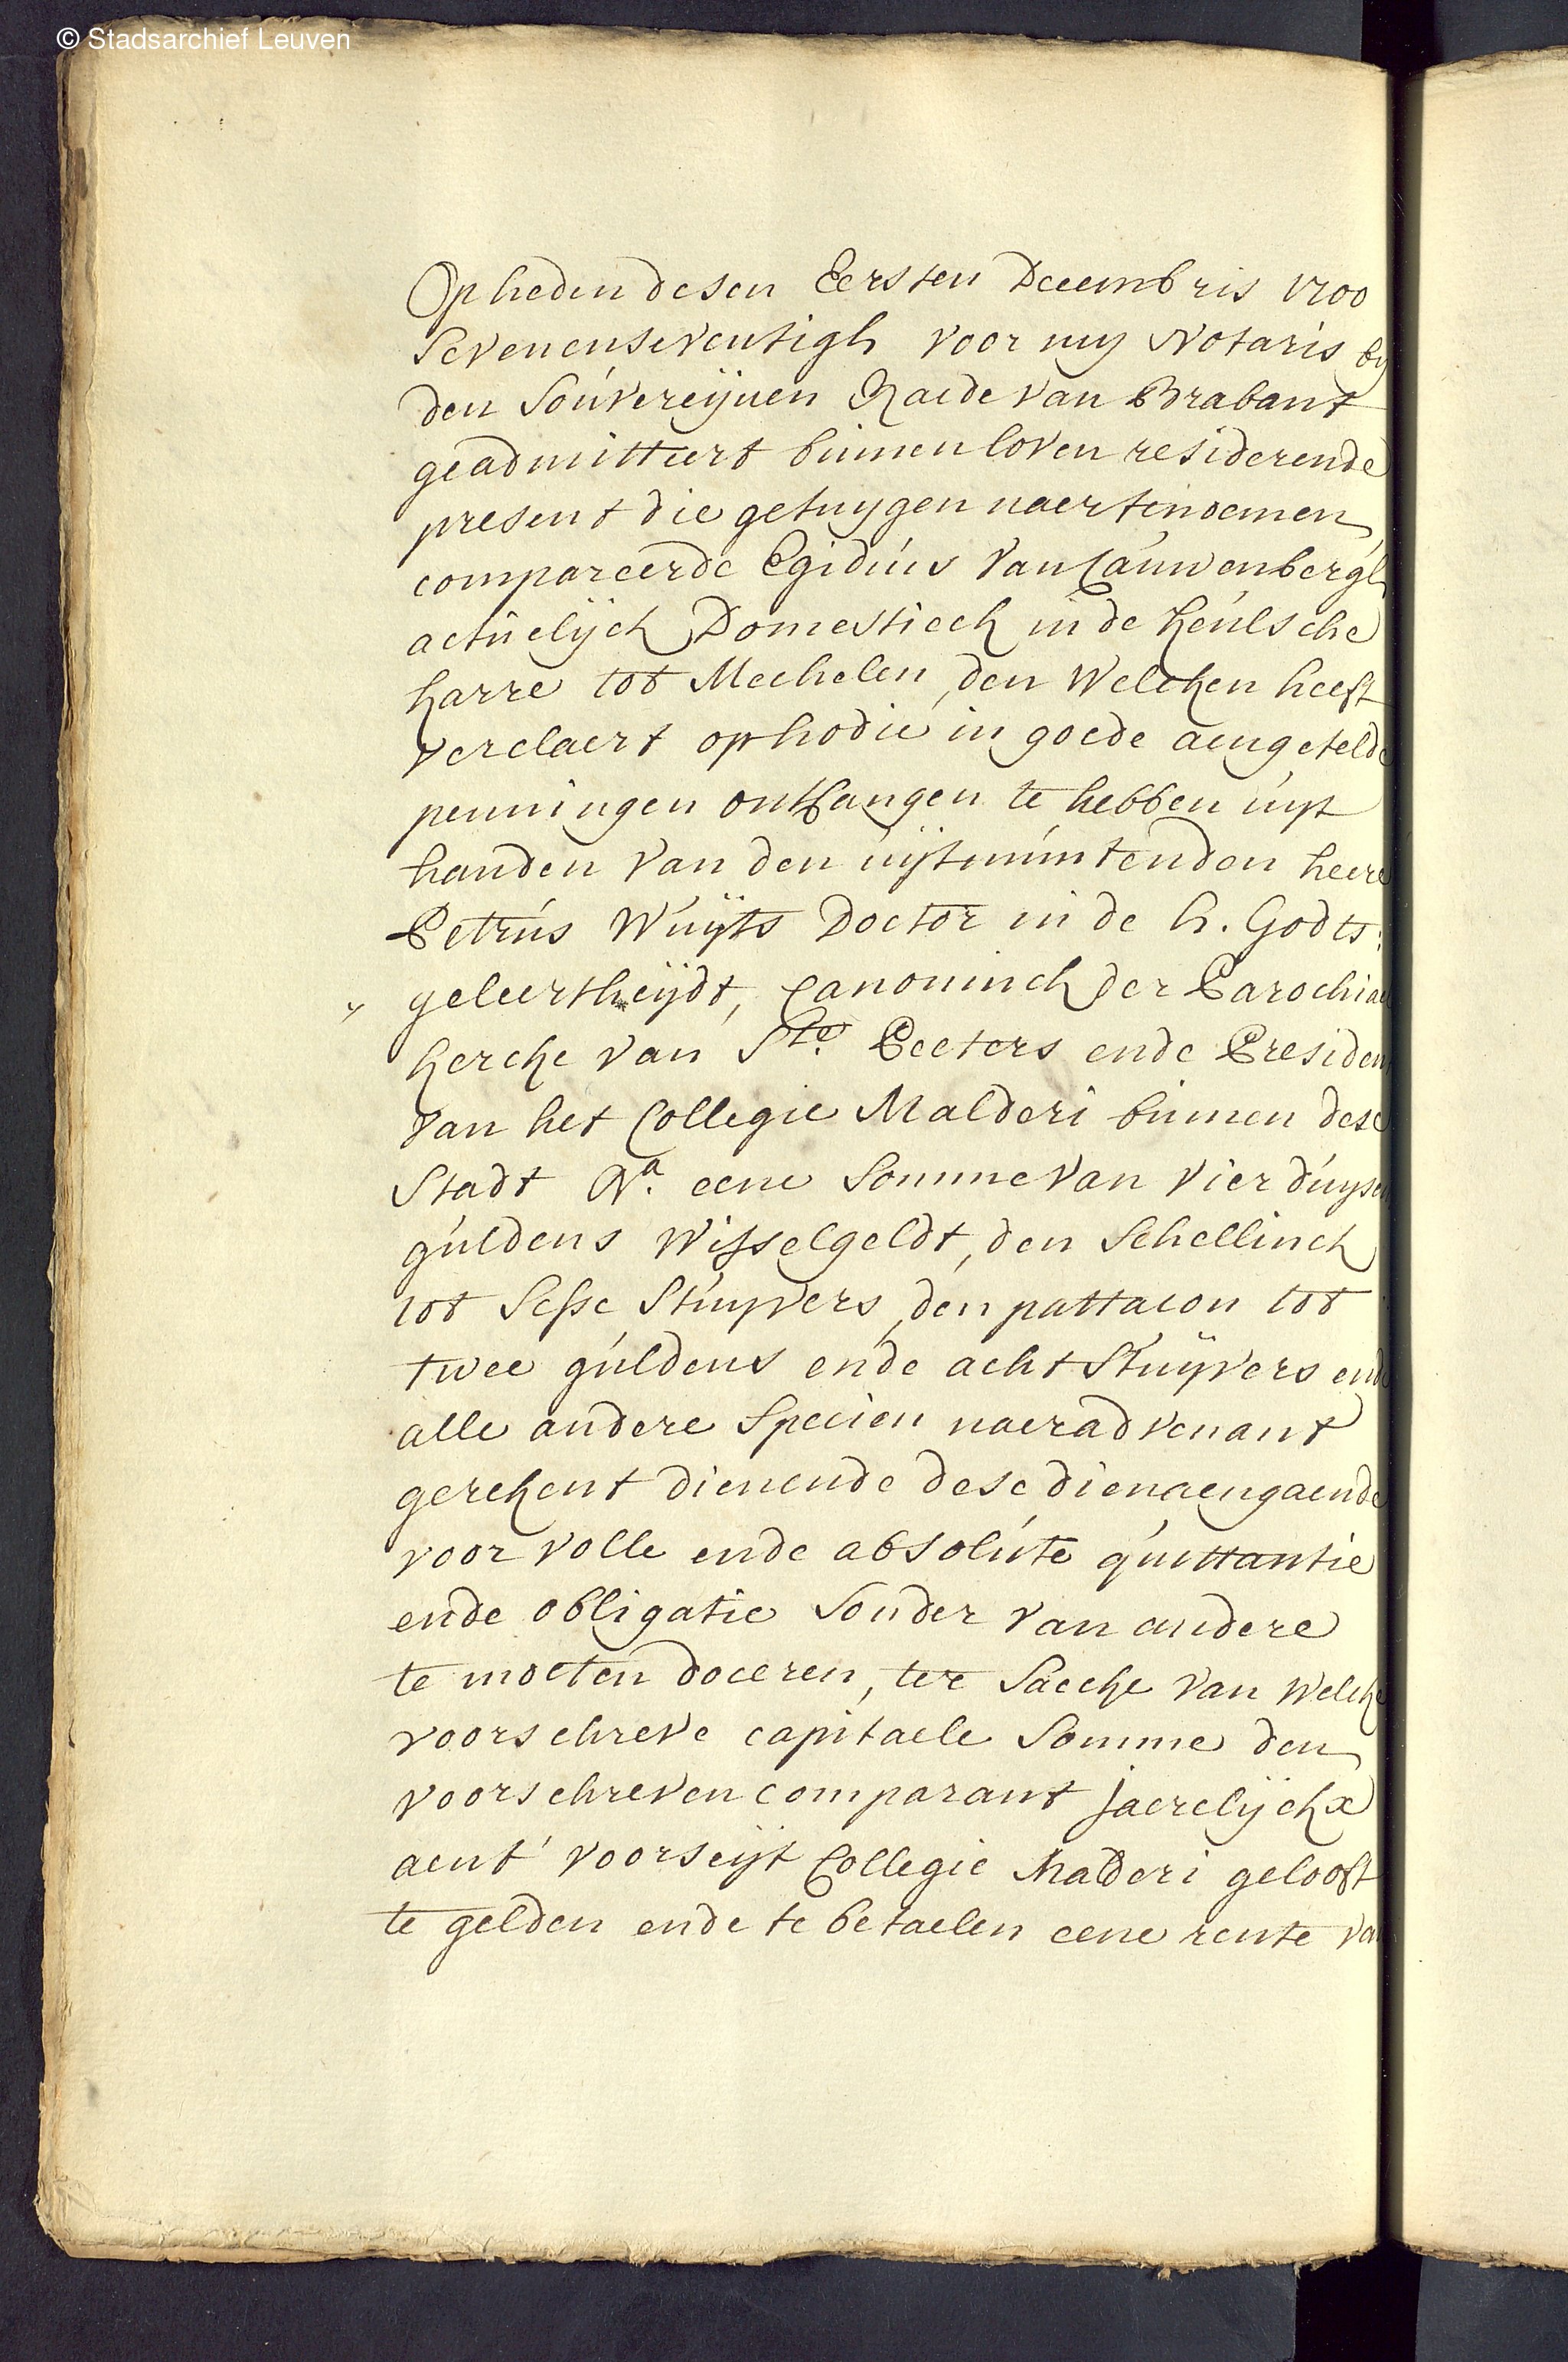 © Stadsarchief Leuven
Op heden desen Eersten Decembris 1700
Sevenenseventigh voor my Notaris by
den Souvereijnen Raede van Brabant
geadmitteert binnen loven residerende
present die getuygen naertenoemen
compareerde Egidius Van Cauwenbergh
actuelijck Domestieck in de keulsche
karre tot Mechelen, den Welcken heeft
verclaert op hodie in goede aengetelde
penningen ontfangen te hebben uijt
handen van den uijtmuntenden heere
Petrus Wuijts Doctor in de h. Godts:
geleertheijdt, Canoninck der Parochiae
kercke van Ste. Peeters ende Presiden
van het Collegie Malderi binnen dese
Stadt Na. eene Somme van vier duysen
guldens Wisselgeldt, den Schellinck
tot Sesse Stuyvers, den pattacon tot
twee guldens ende acht Stuijvers ende
alle andere Specien naer advenant
gerekent dienende dese dienaengaende
voor volle ende absolute quittantie
ende obligatie Sonder van andere
te moeten doceren, ter Saecke van Welcke
voorschreve capitaele Somme den
voorschreven comparant jaerelijckx
aent' voorseijt Collegie Malderi gelooft
te gelden ende te betaelen eene rente va